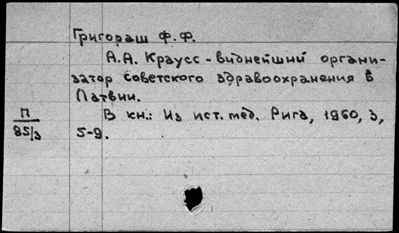 Григораш Ф.Ф.
А.А. Краусс - виднейший органи-
затор советского здравоохранения в
Латвии.
П
85/3
В кн.: Из ист. мед. Рига, 1960, 3,
5-9.